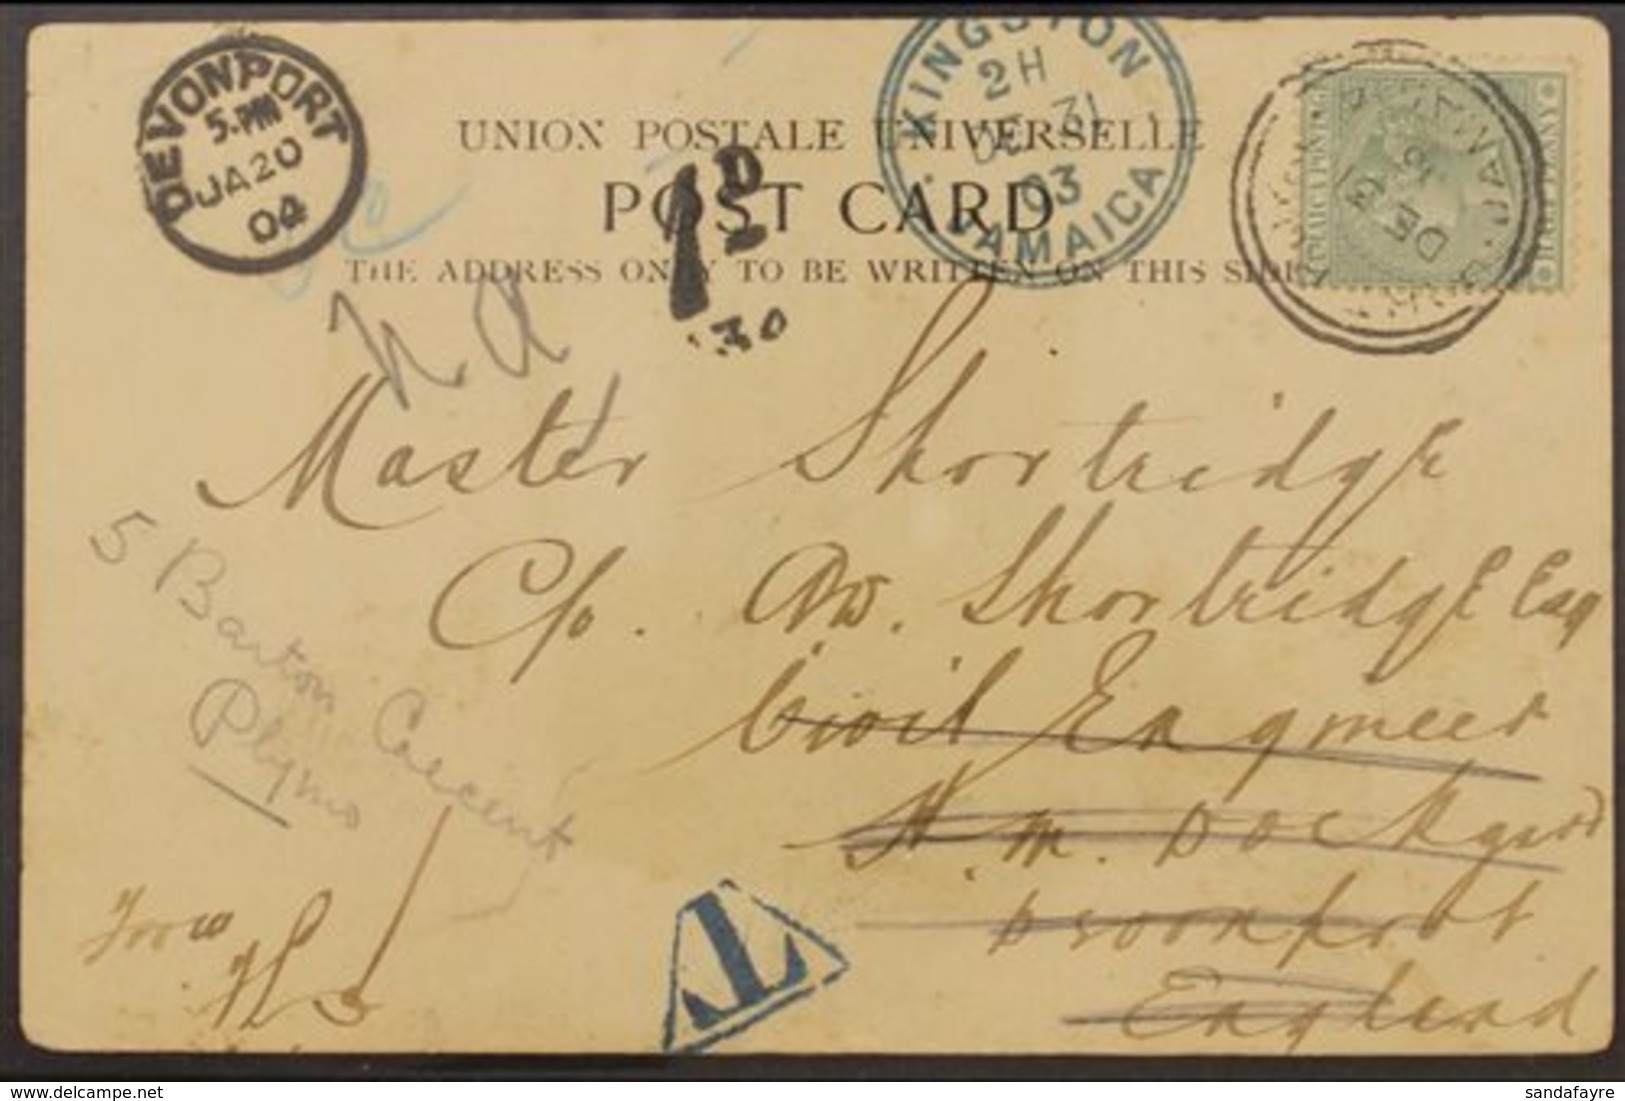 DEVONPORT
5.PM
JA20
04
KINGSTON
2H
DE 31
03
JAMAICA
JAMAICA POSTAGE
HALF PENNY
UNION POSTALE UNIVERSELLE
POST CARD
THE ADDRESS ONLY TO BE WRITTEN ON THIS SIDE
1D
30
Master Shortridge
C/o. Shortridge Esq
Civil Engineer
H.M. Dockyard
Devonport
England
5 Barton Crescent
Plymo
From
T
sandafayre